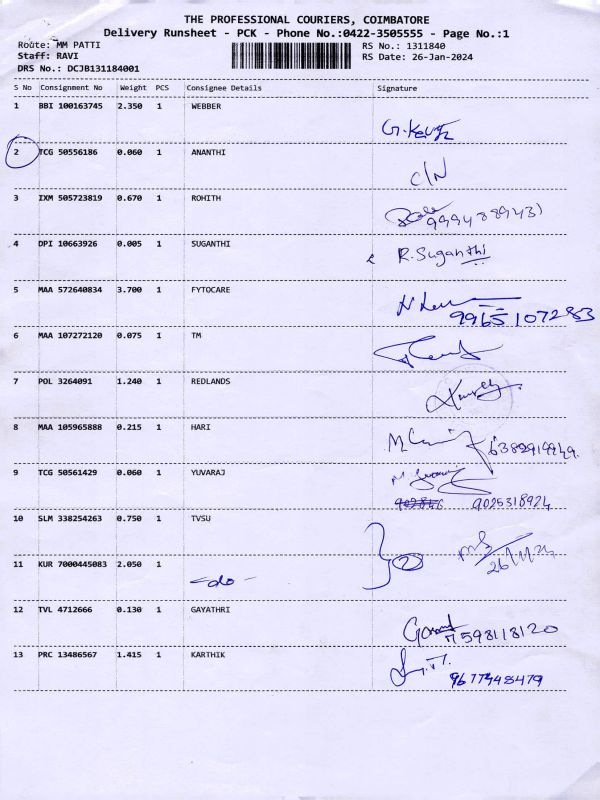 THE PROFESSIONAL COURIERS, COIMBATORE
Delivery Runsheet - PCK - Phone No.:0422-3505555 - Page No.:1
Route: MM PATTI RS No.: 1311840
Staff: RAVI RS Date: 26-Jan-2024
DRS No.: DCJB131184001
S No Consignment No Weight PCS Consignee Details Signature
1 BBI 100163745 2.350 1 WEBBER
2 TCG 50556186 0.060 1 ANANTHI
C/N
3 IXM 505723819 0.670 1 ROHITH
4 DPI 10663926 0.005 1 SUGANTHI
R.Suganthi
5 MAA 572640834 3.700 1 FYTOCARE
9965107283
6 MAA 107272120 0.075 1 TM
7 POL 3264091 1.240 1 REDLANDS
8 MAA 105965888 0.215 1 HARI
9 TCG 50561429 0.060 1 YUVARAJ
9025318924
10 SLM 338254263 0.750 1 TVSU
11 KUR 7000445083 2.050 1
-do- 2 26/1/24
12 TVL 4712666 0.130 1 GAYATHRI
7598118120
13 PRC 13486567 1.415 1 KARTHIK
9677948479